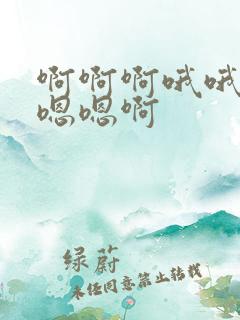 啊啊啊哦哦
嗯嗯啊
绿蔚
未经同意禁止转载